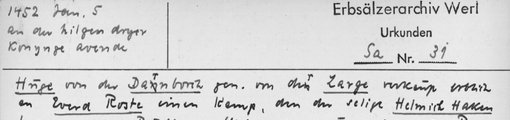 1452 Jan. 5
an der hilgen dryer
Konynge avende
Erbsälzerarchiv Werl
Urkunden
Sa Nr. 31
Huge von der gen. von dem Large verkaup erblich
an Everd Roste einen Kamp, den der selige Helmich Haken